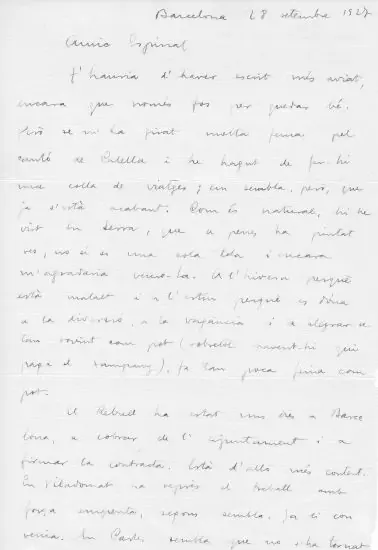 Barcelona 28 setembre 1927
Amic Espinal
T'hauria d'haver escrit més aviat,
encara que només fos per quedar bé.
Però se m'ha girat molta feina pel
cantó de Calella i he hagut de fer-hi
una colla de viatges; em sembla, però, que
ja s'està acabant. Com és natural, hi he
vist En Serra, que a penes ha pintat
res, no sé si una sola tela i encara
m'agradaria veure-la. A l'hivern perquè
està malalt i a l'estiu perquè es dóna
a la diversió, a la vagància i a alegrar-se
tan sovint com pot (sobretot havent-hi qui
paga el xampany), fa tan poca feina com
pot.
El Rebull ha estat uns dies a Barce
lona, a cobrar de l'ajuntament i a
firmar la contracta. Està d'allò més content.
En Viladomat ha reprès el treball amb
força empenta, segons sembla. Ja si con
venia. En Carles sembla que no s'ha tornat